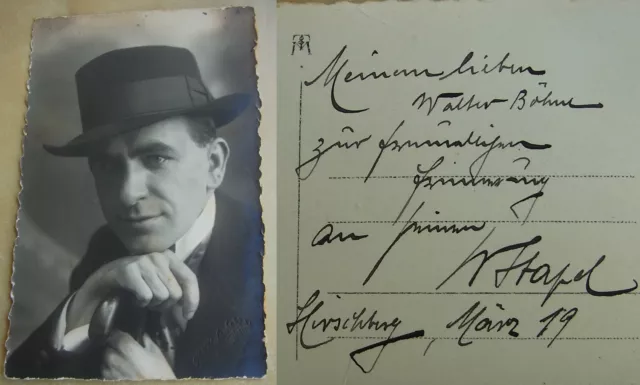 Meinem lieben
Walter Böhne
zur freundlichen
Erinnerung
an seinen
W Stapel
Hirschberg, März 19